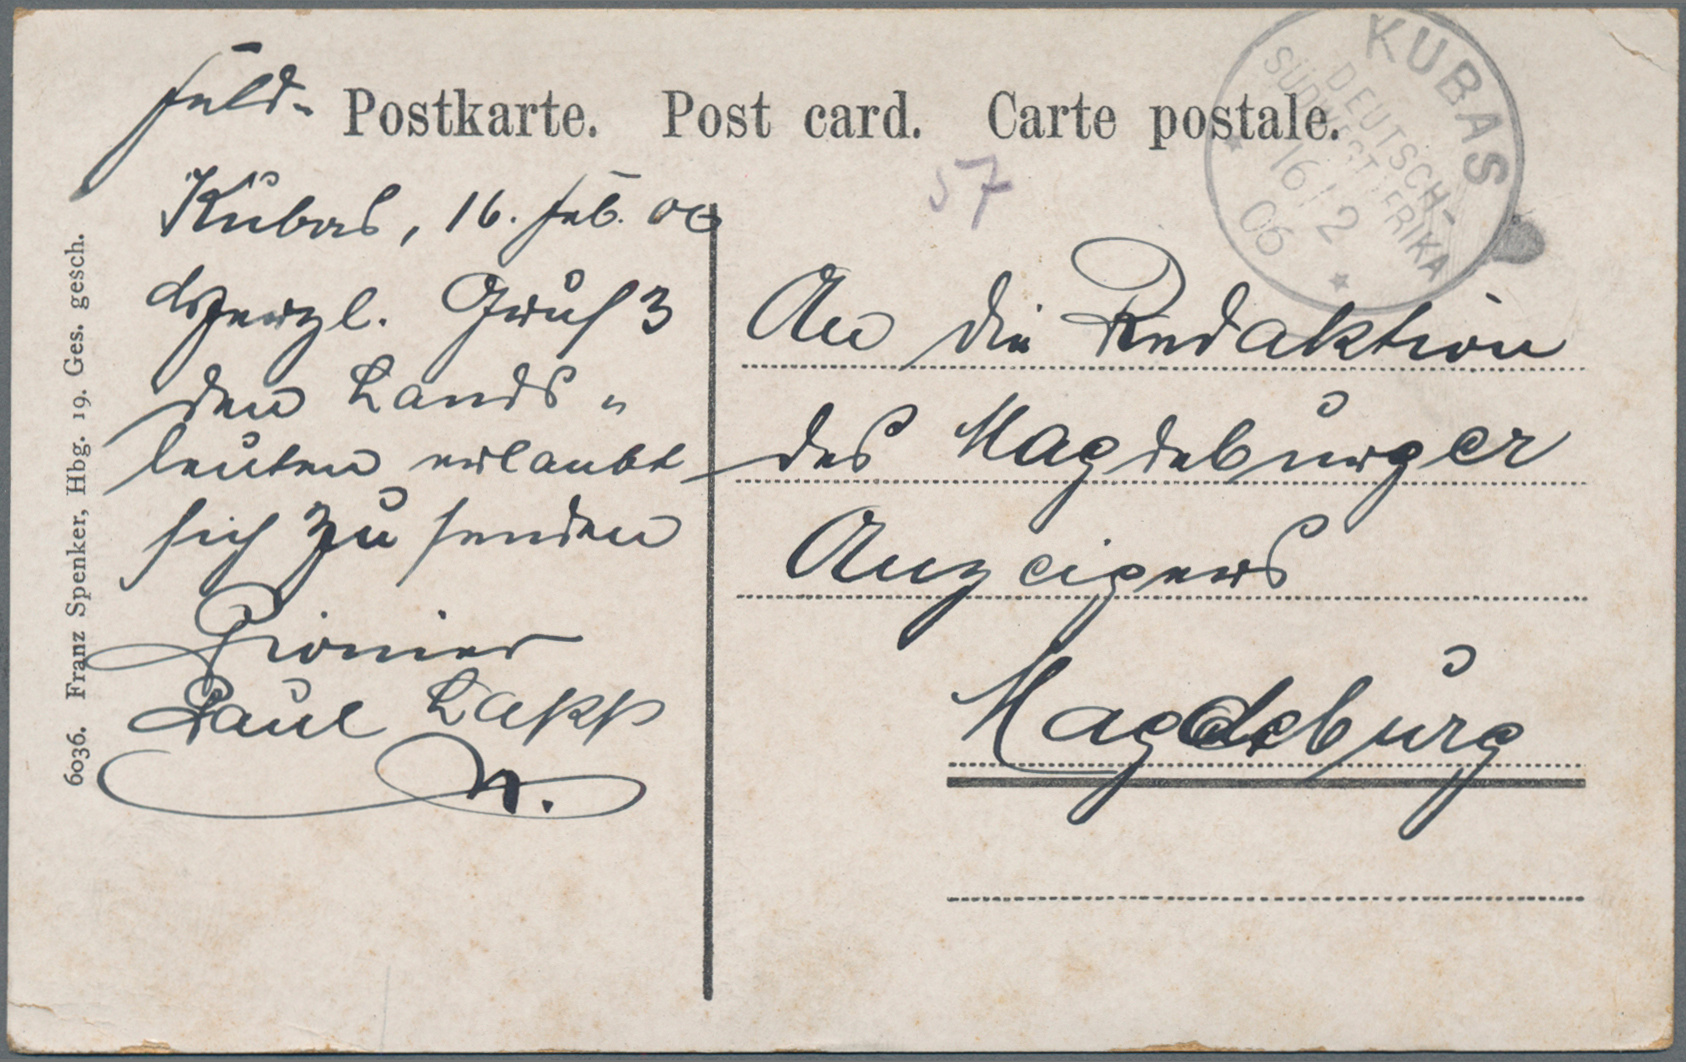 Feld-
Postkarte. Post card. Carte postale.
Kubas, 16. Feb. 06
Herzl. Gruß
den Lands„
leuten erlaubt
sich zu senden
Pionier
Paul Lapp
57
KUBAS
DEUTSCH-
SÜDWESTAFRIKA
16/2
06
An die Redaktion
des Magdeburger
Anzeigers
Magdeburg
6036. Franz Spenker, Hbg. 19. Ges. gesch.